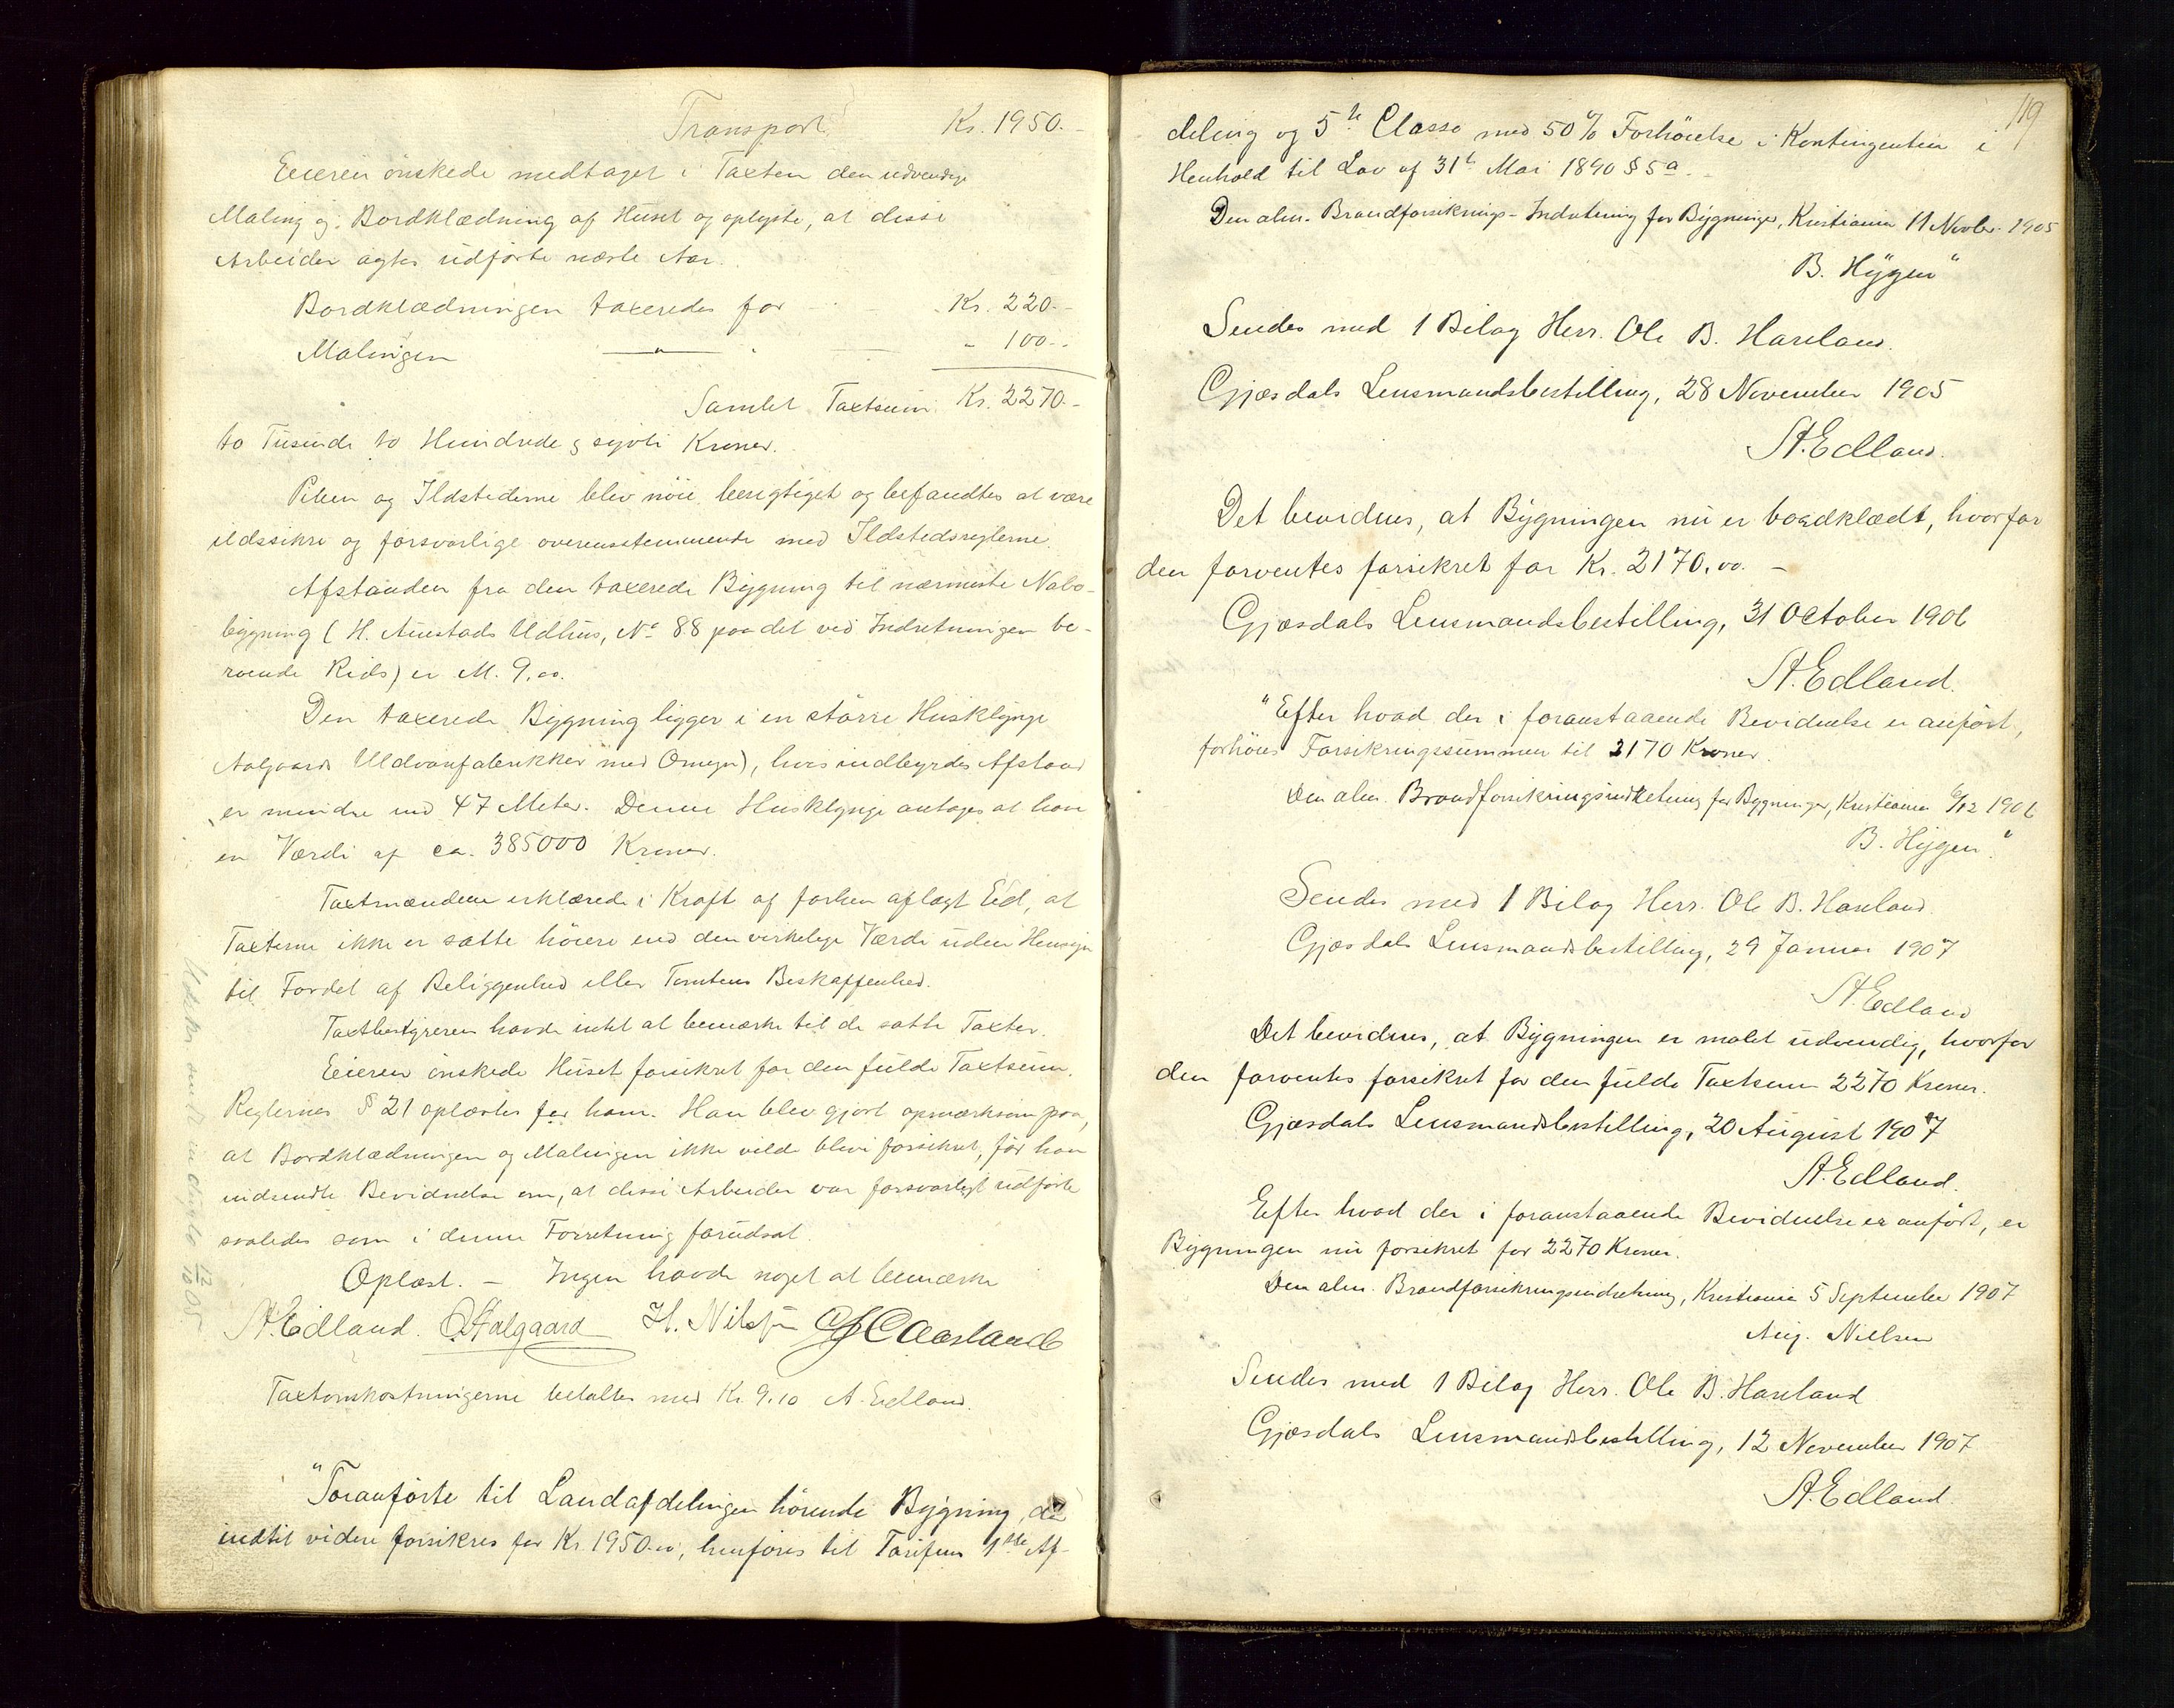 Transport Kr. 1950.-
Eieren ønskede medtaget i Taxten den udvendige
Maling og Bordklædning af Huset og oplyste, at disse
Arbeider agtes udførte næste Aar.
Bordklædningen taxeredes for Kr. 220.-
Malingen —"— - 100.-
Samlet Taxtsum Kr. 2270.-
to Tusinde to Hundrede og sytti Kroner.
Piben og Ildstederne blev nøie besigtiget og befandtes at være
ildssikre og forsvarlige overensstemmende med Ildstedsreglerne.
Afstanden fra den taxerede Bygning til nærmeste Nabo-
bygning (H. Auestads Udhus, No 88 paa det ved Indretningen be-
roende Rids) er M. 9,00.
Den taxerede Bygning ligger i en større Husklynge
Aalgaards Uldvarefabrikker med Omegn), hvis indbyrdes Afstand
er mindre end 47 Meter. Denne Husklynge antages at have
en Værdi af ca. 385000 Kroner.
Taxtmændene erklærede i Kraft af forhen aflagt Eid, at
Taxterne ikke er satte høiere end den virkelige Værdi uden Hensyn
til Fordel af Beliggenhed eller Tomtens Beskaffenhed.
Taxtbestyreren havde intet at bemærke til de satte Taxter.
Eieren ønskede Huset forsikret for den fulde Taxtsum.
Reglernes § 21 oplæstes for ham. Han blev gjort opmærksom paa,
at Bordklædningen og Malingen ikke vilde blive forsikret, før han
indsendte Bevidnelse om, at disse Arbeider var forsvarligt udførte
saaledes som i denne Forretning forudsat.
Oplæst. – Ingen havde noget at bemærke
A. Edland. O. Aalgaard H. Nilssen Aarsland
Taxtomkostningerne betaltes med Kr. 9,10 A. Edland.
"Foranførte til Landafdelingen hørende Bygning, der
indtil videre forsikres for Kr. 1950.00, henføres til Tarifens 1ste Af-
12/10 05
119
deling og 5te Classe med 50% Forhøielse i Kontingenten i
Henhold til Lov af 31te Mai 1890 § 5a.
Den alm. Brandforsikrings-Indretning for Bygninger, Kristiania 11 Novbr. 1905
B. Hygen"
Sendes med 1 Bilag Herr. Ole B. Haveland.
Gjæsdals Lensmandsbestilling, 28 November 1905
A. Edland.
Det bevidnes, at Bygningen nu er bordklædt, hvorfor
den forventes forsikret for Kr. 2170,00. –
Gjæsdals Lensmandsbestilling, 31 October 1906
A. Edland.
"Efter hvad der i foranstaaende Bevidnelse er anført,
forhøies Forsikringssummen til 2170 Kroner.
Den alm. Brandforsikringsindretning for Bygninger, Kristiania 6/12 1906
B. Hygen."
Sendes med 1 Bilag Herr. Ole B. Haveland.
Gjæsdals Lensmandsbestilling, 29 Januar 1907
A. Edland
Det bevidnes, at Bygningen er malet udvendig, hvorfor
den forventes forsikret for den fulde Taxtsum 2270 Kroner.
Gjæsdals Lensmandsbestilling, 20 August 1907
A. Edland.
Efter hvad der i foranstaaende Bevidnelse er anført, er
Bygningen nu forsikret for 2270 Kroner.
Den alm. Brandforsikringsindretning, Kristiania 5 September 1907
Aug. Nielsen
Sendes med 1 Bilag Herr. Ole B. Haveland
Gjæsdals Lensmandsbestilling, 12 November 1907
A. Edland.